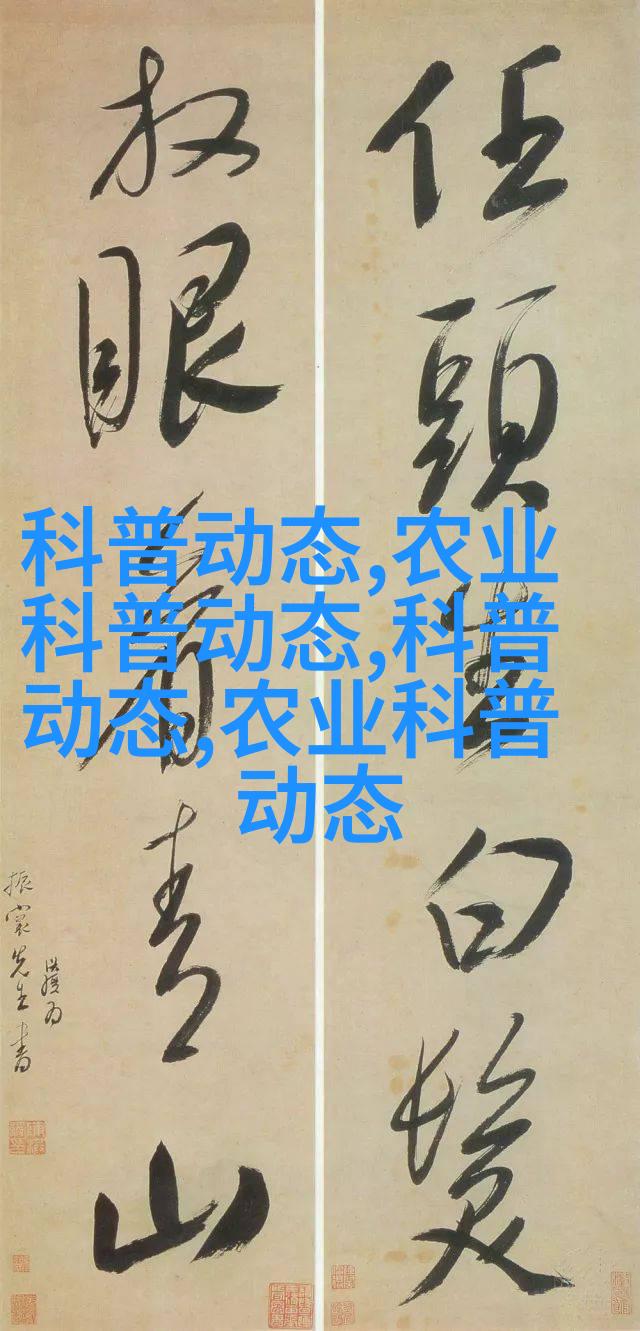 任頭生白髮
放眼看青山
振裳先生書
科普动态,农业
科普动态,科普
动态,农业科普
动态